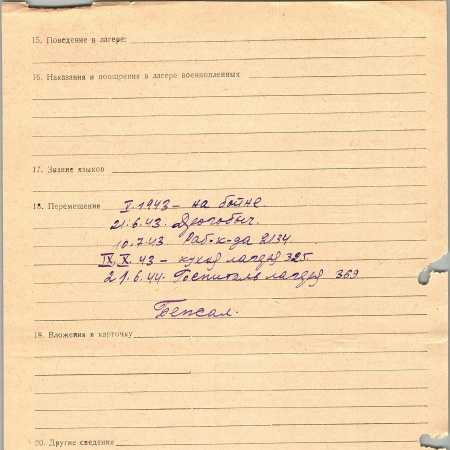 15. Поведение в лагере:
16. Наказания и поощрения в лагере военнопленных
17. Знание языков
18. Перемещения V.1943 – на бойне.
21.6.43. Дрогобыч.
10.7.43. Раб. к-да 2134
IX, X. 43 – кухня лагеря 325
21.6.44. Госпиталь лагеря 369
Бежал.
19. Вложения в карточку
20. Другие сведения